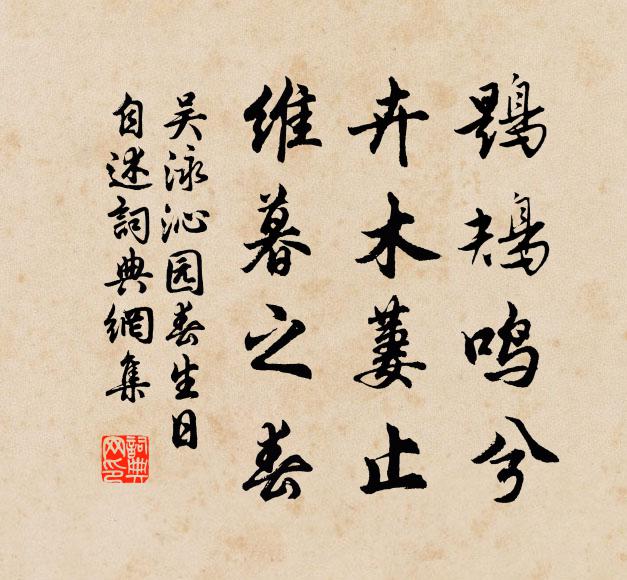 鶗鳺鸣兮
卉木萋止
维暮之春
吴泳沁园春生日
自述詞典網集
詞典
网印